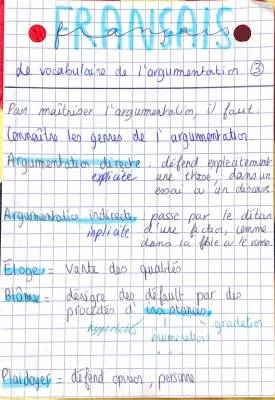 FRANÇAIS
français
Le vocabulaire de l'argumentation ③
Pour maîtriser l'argumentation, il faut
Connaître les genres de l'argumentation
Argumentation directe : défend explicitement
explicite une thèse, dans un
essai ou un discours
Argumentation indirecte : passe par le détour
implicite d'une fiction, comme
dans la fable ou le roman
Éloge = vante des qualités
Blâme = désigne des défault par des
procédés d'insistances
hyperboles gradation
énumération
Plaidoyer = défend opinion, personne